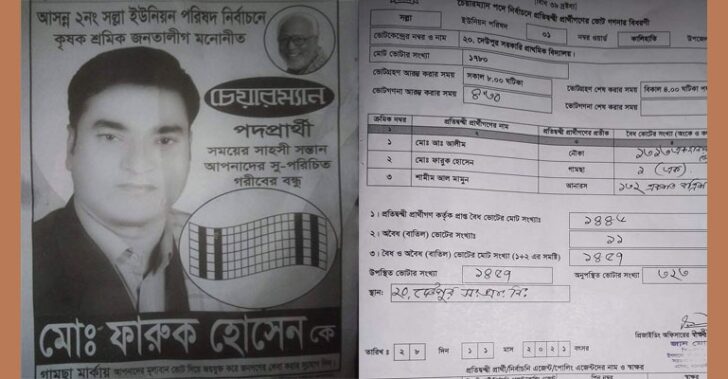 আসন্ন ২নং সল্লা ইউনিয়ন পরিষদ নির্বাচনে
কৃষক শ্রমিক জনতালীগ মনোনীত
চেয়ারম্যান
পদপ্রার্থী
সময়ের সাহসী সন্তান
আপনাদের সু-পরিচিত
গরীবের বন্ধু
মোঃ ফারুক হোসেন কে
গামছা মার্কায় আপনাদের মূল্যবান ভোট দিয়ে জয়যুক্ত করে জনগণের সেবা করার সুযোগ দিন।
চেয়ারম্যান পদে নির্বাচনে প্রতিদ্বন্দ্বী প্রার্থীগণের ভোট গণনার বিবরণী
সল্লা ইউনিয়ন পরিষদ ০১ নম্বর ওয়ার্ড কালিহাতি
ভোটকেন্দ্রের নম্বর ও নাম ২০. দেউপুর সরকারি প্রাথমিক বিদ্যালয়।
মোট ভোটার সংখ্যা ১৭৮০
ভোটগ্রহণ আরম্ভ করার সময় সকাল ৮.০০ ঘটিকা ভোটগ্রহণ শেষ করার সময় বিকাল ৪.০০ ঘটিকা
ভোটগণনা আরম্ভ করার সময় ভোটগণনা শেষ করার সময়
ক্রমিক নম্বর প্রতিদ্বন্দ্বী প্রার্থীগণের নাম প্রতিদ্বন্দ্বী প্রার্থীগণের প্রতীক বৈধ ভোটের সংখ্যা
১ ২ ৩
১ মোঃ আঃ আলীম নৌকা
২ মোঃ ফারুক হোসেন গামছা ১ (এক)
৩ শামীম আল মামুন আনারস
১। প্রতিদ্বন্দ্বী প্রার্থীগণ কর্তৃক প্রাপ্ত বৈধ ভোটের মোট সংখ্যাঃ
২। অবৈধ (বাতিল) ভোটের মোট সংখ্যাঃ ১১
৩। বৈধ ও অবৈধ (বাতিল) ভোটের মোট সংখ্যা (১+২ এর সমষ্টি)
উপস্থিত ভোটার সংখ্যা অনুপস্থিত ভোটার সংখ্যা
স্থান: ২০. দেউপুর
প্রিজাইডিং অফিসারের
তারিখ: ২৮ দিন ১১ মাস ২০২১ বৎসর
প্রতিদ্বন্দ্বী প্রার্থী/নির্বাচনি এজেন্ট/পোলিং এজেন্টদের নাম ও স্বাক্ষর